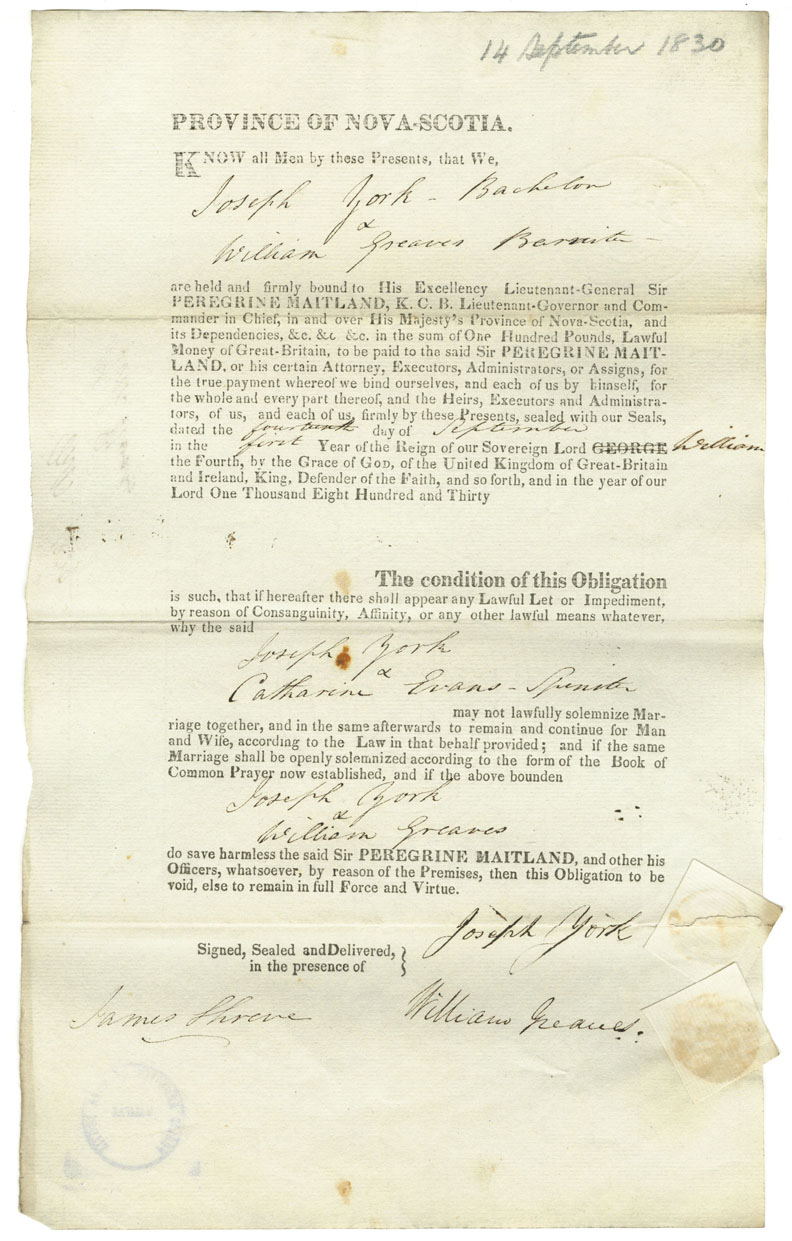 14 September 1830
PROVINCE OF NOVA-SCOTIA.
KNOW all Men by these Presents, that We,
Joseph York - Bachelor
&
William Greaves Barrister -
are held and firmly bound to His Excellency Lieutenant-General Sir
PEREGRINE MAITLAND, K. C. B. Lieutenant-Governor and Com-
mander in Chief, in and over His Majesty's Province of Nova-Scotia, and
its Dependencies, &c. &c &c. in the sum of One Hundred Pounds, Lawful
Money of Great-Britain, to be paid to the said Sir PEREGRINE MAIT-
LAND, or his certain Attorney, Executors, Administrators, or Assigns, for
the true payment whereof we bind ourselves, and each of us by himself, for
the whole and every part thereof, and the Heirs, Executors and Administra-
tors, of us, and each of us, firmly by these Presents, sealed with our Seals,
dated the fourteenth day of September
in the first Year of the Reign of our Sovereign Lord GEORGE William
the Fourth, by the Grace of God, of the United Kingdom of Great-Britain
and Ireland, King, Defender of the Faith, and so forth, and in the year of our
Lord One Thousand Eight Hundred and Thirty
The condition of this Obligation
is such, that if hereafter there shall appear any Lawful Let or Impediment,
by reason of Consanguinity, Affinity, or any other lawful means whatever,
why the said
Joseph York
&
Catharine Evans - Spinster
may not lawfully solemnize Mar-
riage together, and in the same afterwards to remain and continue for Man
and Wife, according to the Law in that behalf provided; and if the same
Marriage shall be openly solemnized according to the form of the Book of
Common Prayer now established, and if the above bounden
Joseph York
&
William Greaves
do save harmless the said Sir PEREGRINE MAITLAND, and other his
Officers, whatsoever, by reason of the Premises, then this Obligation to be
void, else to remain in full Force and Virtue.
Joseph York
Signed, Sealed and Delivered,
in the presence of
James Shreve
William Greaves.